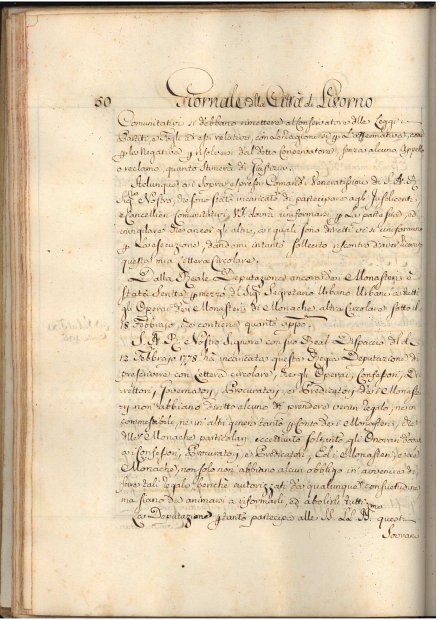 50 Giornale della Città di Livorno
Comunitativi si debbano rimettere al Conservatore delle Leggi i
Partiti, e Fogli ad essi relativi, con le ragioni sì per l'affermativa, che
per la Negativa, e si risolva dal detto Conservatore, senza alcuno Appello
o reclamo quanto stimerà di Giustizia.
Adunque ai sopra espressi Comandi Veneratissimi di S. A. R.
Sig.e Nostro, che sono stato incaricato di partecipare agli Jusdicenti,
e Cancellieri Comunitativi, VS. dovrà uniformarsi per la parte sua, ed
invigilare che ancor gli altri, ai quali sono diretti vi si uniformino
per la esecuzione, dandomi intanto sollecito riscontro d'aver ricevuta
questa mia Lettera Circolare.
Dalla Reale Deputazione ancora dei Monasteri è
stata scritta per mezzo di Sig.e Segretario Urbano Urbani a tutti
gli Operai dei Monasteri di Monache altra Circolare sotto il
18 Febbraio, che contiene quanto appo.
S. A. R. Nostro Signore con suo Real Dispaccio del dì
12 Febbrajo 1778 ha incaricata questa Regia Deputazione di
prescrivere con Lettera circolare, che gli Operai, Confessori, Di-
rettori, Governatori, Procuratori, e Predicatori dei Monaste-
ri non abbiano diritto alcuno di prendere verun regalo, nè in
commestibili, nè in altri generi tanto per Conto dei Monasteri, che
delle Monache particolari, eccettuato soltanto gli Onorari dovuti
ai Confessori, Procuratori, e Predicatori, E che i Monasteri, ed
Monache, non solo non abbiano alcun obbligo in avvenire di
fare tali regali benchè autorizzati da qualunque consuetudine
ma siano da animarsi a riformarli, ed abolirli tutti.
La Deputazione pertanto partecipa alle SS. LL. questi
Sovrani